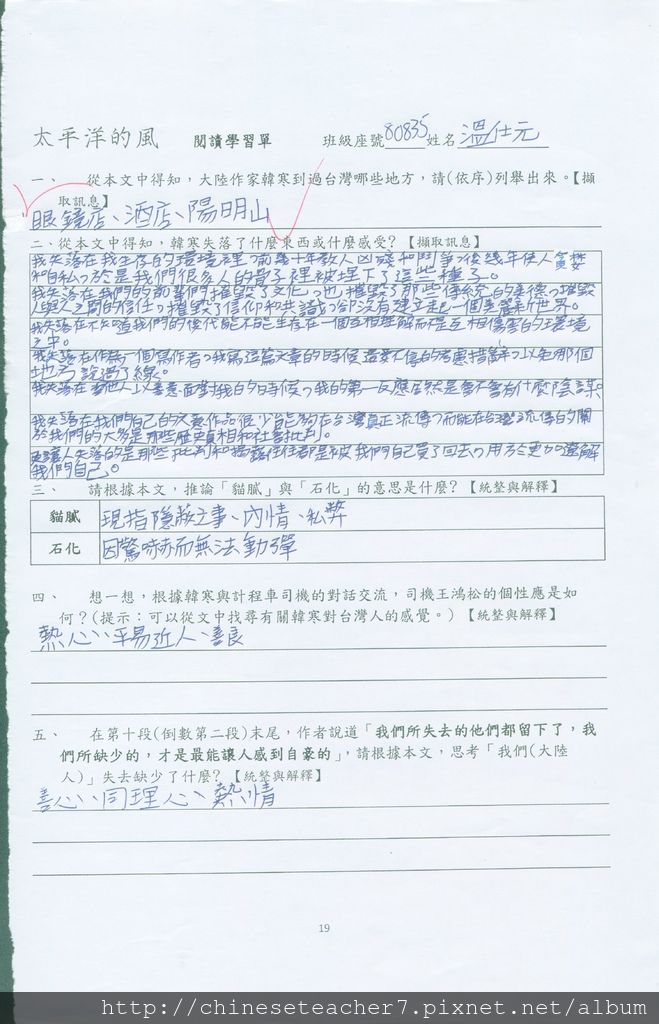 太平洋的風 閱讀學習單 班級座號80835姓名溫仕元
一、 從本文中得知，大陸作家韓寒到過台灣哪些地方，請(依序)列舉出來。【擷
取訊息】
眼鏡店、酒店、陽明山
二、從本文中得知，韓寒失落了什麼東西或什麼感受？【擷取訊息】
我失落在我生存的環境裡，前幾十年教人凶殘和鬥爭，後幾年使人貪婪
和自私，於是我們很多人的骨子裡被埋下了這些種子。
我失落在我們的前輩們摧毀了文化，也摧毀了那些傳統的美德，摧毀
人與人之間的信任，摧毀了信仰和共識，卻沒有建立起一個美麗新世界。
我失落在不知道我們的後代能不能生存在一個互相理解而不是互相傷害的環境
之中。
我失落在作為一個寫作者，我寫這篇文章的時候還要不停的考慮措辭，以免哪個
地方說過了線。
我失落在當他人以善意面對我的時候，我的第一反應居然是會不會有什麼陰謀。
我失落在我們自己的文藝作品很少能夠在台灣真正流傳，而能在台灣流傳的關
於我們的大多是那些歷史真相和社會批判。
更讓人失落的是那些批判和揭露往往都是被我們自己買了回去，用於更加瞭解
我們自己。
三、 請根據本文，推論「貓膩」與「石化」的意思是什麼？【統整與解釋】
貓膩 現指隱蔽之事、內情、私弊
石化 因驚嚇而無法動彈
四、 想一想，根據韓寒與計程車司機的對話交流，司機王鴻松的個性應是如
何？(提示：可以從文中找尋有關韓寒對台灣人的感覺。)【統整與解釋】
熱心、平易近人、善良
五、 在第十段(倒數第二段)末尾，作者說道「我們所失去的他們都留下了，我
們所缺少的，才是最能讓人感到自豪的」，請根據本文，思考「我們(大陸
人)」失去缺少了什麼？【統整與解釋】
善心、同理心、熱情
19
http://chineseteacher7.pixnet.net/album